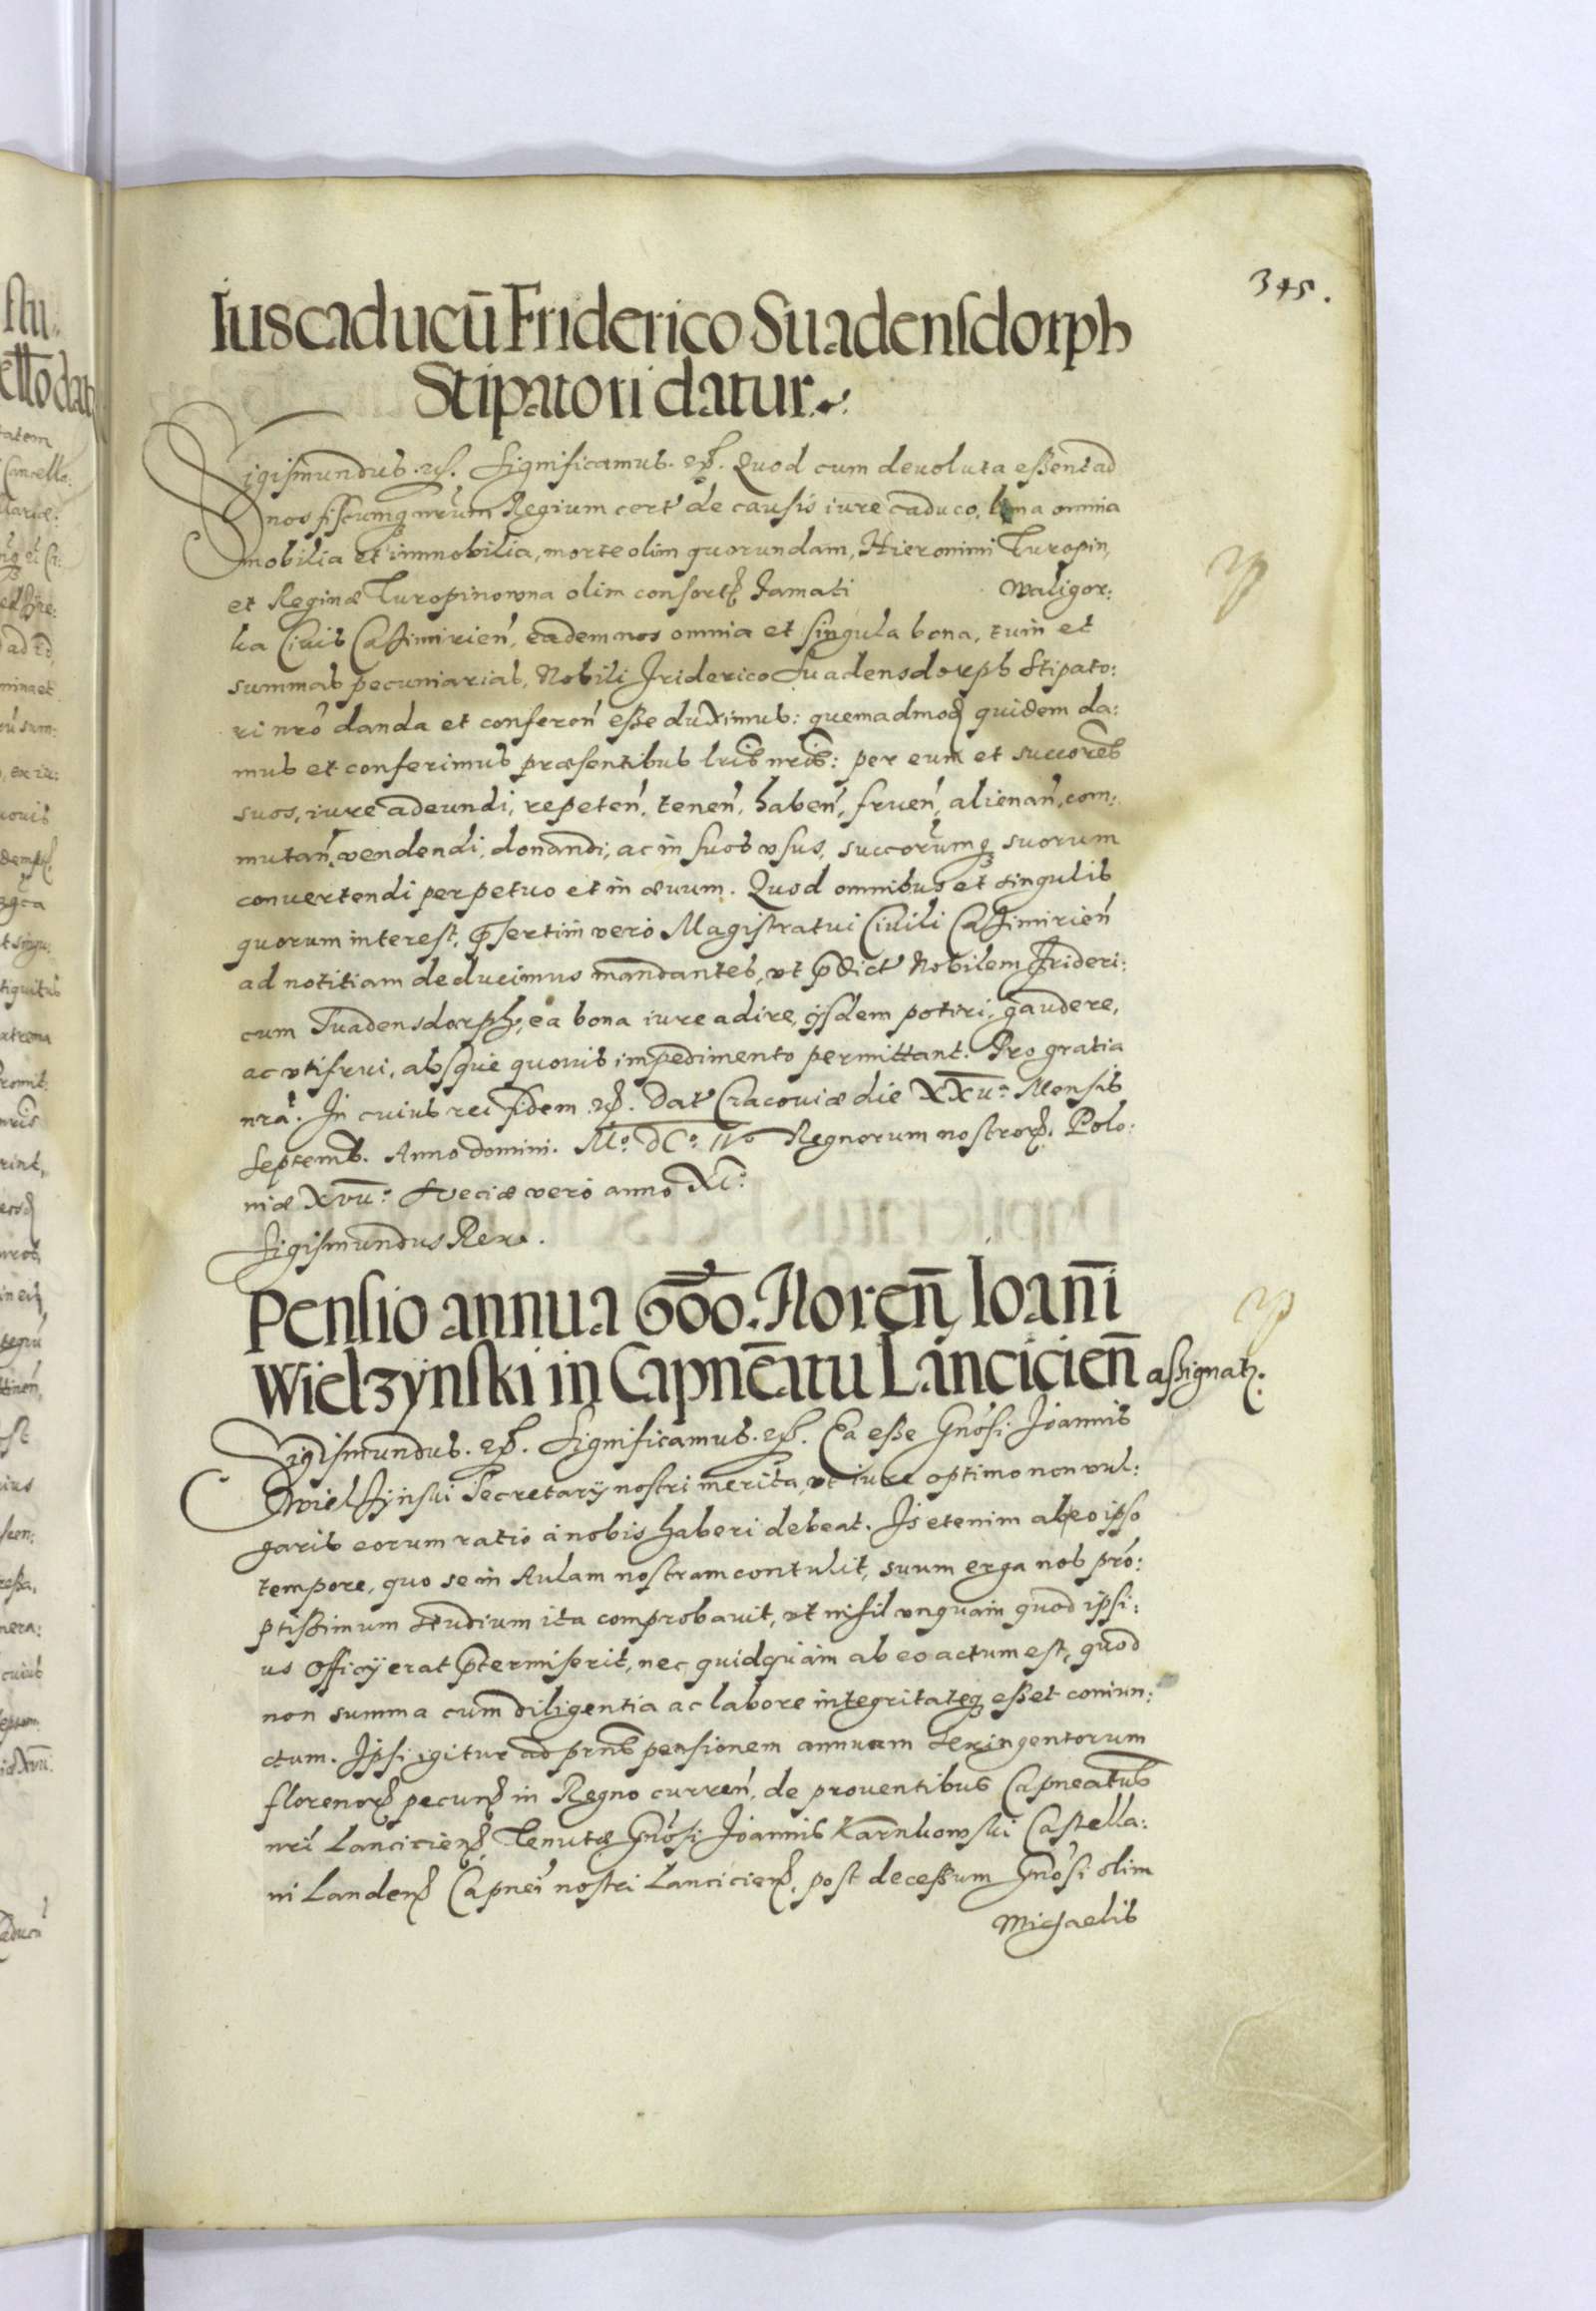 345.
Ius caducū Friderico Suadensdorph
Stipatori datur.
Sigismundus. etc. Significamus. etc. Quod cum deuoluta essent ad
nos fiscumq nrum Regium cert de causis iure caduco, bona omnia
mobilia et immobilia, morte olim quorundam, Hieronimi Turopin,
et Reginæ Turopinowna olim consort Famati Waligor:
ka Ciuis Casimirien, eadem nos omnia et singula bona, tum et
summas pecuniarias, Nobili Friderico Suadensdorph Stipato:
ri nro danda et conferen esse duximus: quemadmod quidem da:
mus et conferimus præsentibus lris nris: per eum et succores
suos, iure adeundi, repeten, tenen, haben, fruen, alienan, com:
mutan, vendendi, donandi, ac in suos vsus, succorumq suorum
conuertendi perpetuo et in æuum. Quod omnibus et singulis
quorum interest, psertim vero Magistratui Ciuili Casimirien
ad notitiam deducimus mandantes, vt pdict Nobilem Frideri:
cum Suadensdorph, ea bona iure adire, ijsdem potiri, gaudere,
ac vti frui, absque quouis impedimento permittant. Pro gratia
nra. In cuius rei fidem etc. Dat Cracouiæ die XXv.ª Mensis
Septemb. Anno domini. M.º dC.º IVº Regnorum nostror. Polo:
niæ Xvii.º Sueciæ vero anno XI.º
Sigismundus Rex.
Pensio annua 600. Floren Ioanni
Wielzynski in Capneatu Lancicien assignat.
Sigismundus. etc. Significamus. etc. Ea esse Gnosi Joannis
Wielzynski Secretarij nostri merita, vt iure optimo non vul:
garis eorum ratio a nobis haberi debeat. Is etenim ab eo ipso
tempore, quo se in Aulam nostram contulit, suum erga nos pro:
ptissimum studium ita comprobauit, vt nihil vnquam quod ipsi:
us officij erat ptermiserit, nec quidquam ab eo actum est, quod
non summa cum diligentia ac labore integritateq esset coniun:
ctum. Ipsi igitur ad prns pensionem annuam sexingentorum
florenor pecun in Regno curren, de prouentibus Capneatus
nri Lancicien, Tenutæ Gnosi Joannis Karnkowski Castella:
ni Landen Capnei nostri Lancicien, post decessum Gnosi olim
Michaelis